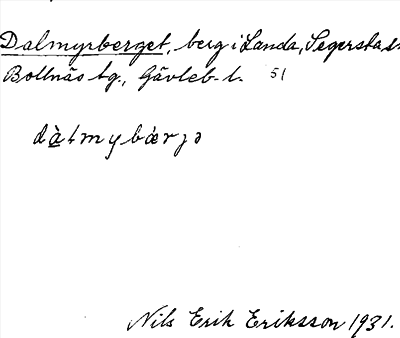 Dalmyrberget, berg i Landa, Segersta sn
Bollnäs tg., Gävleb. l. 51
dàlmybærjə
Nils Erik Eriksson 1931.